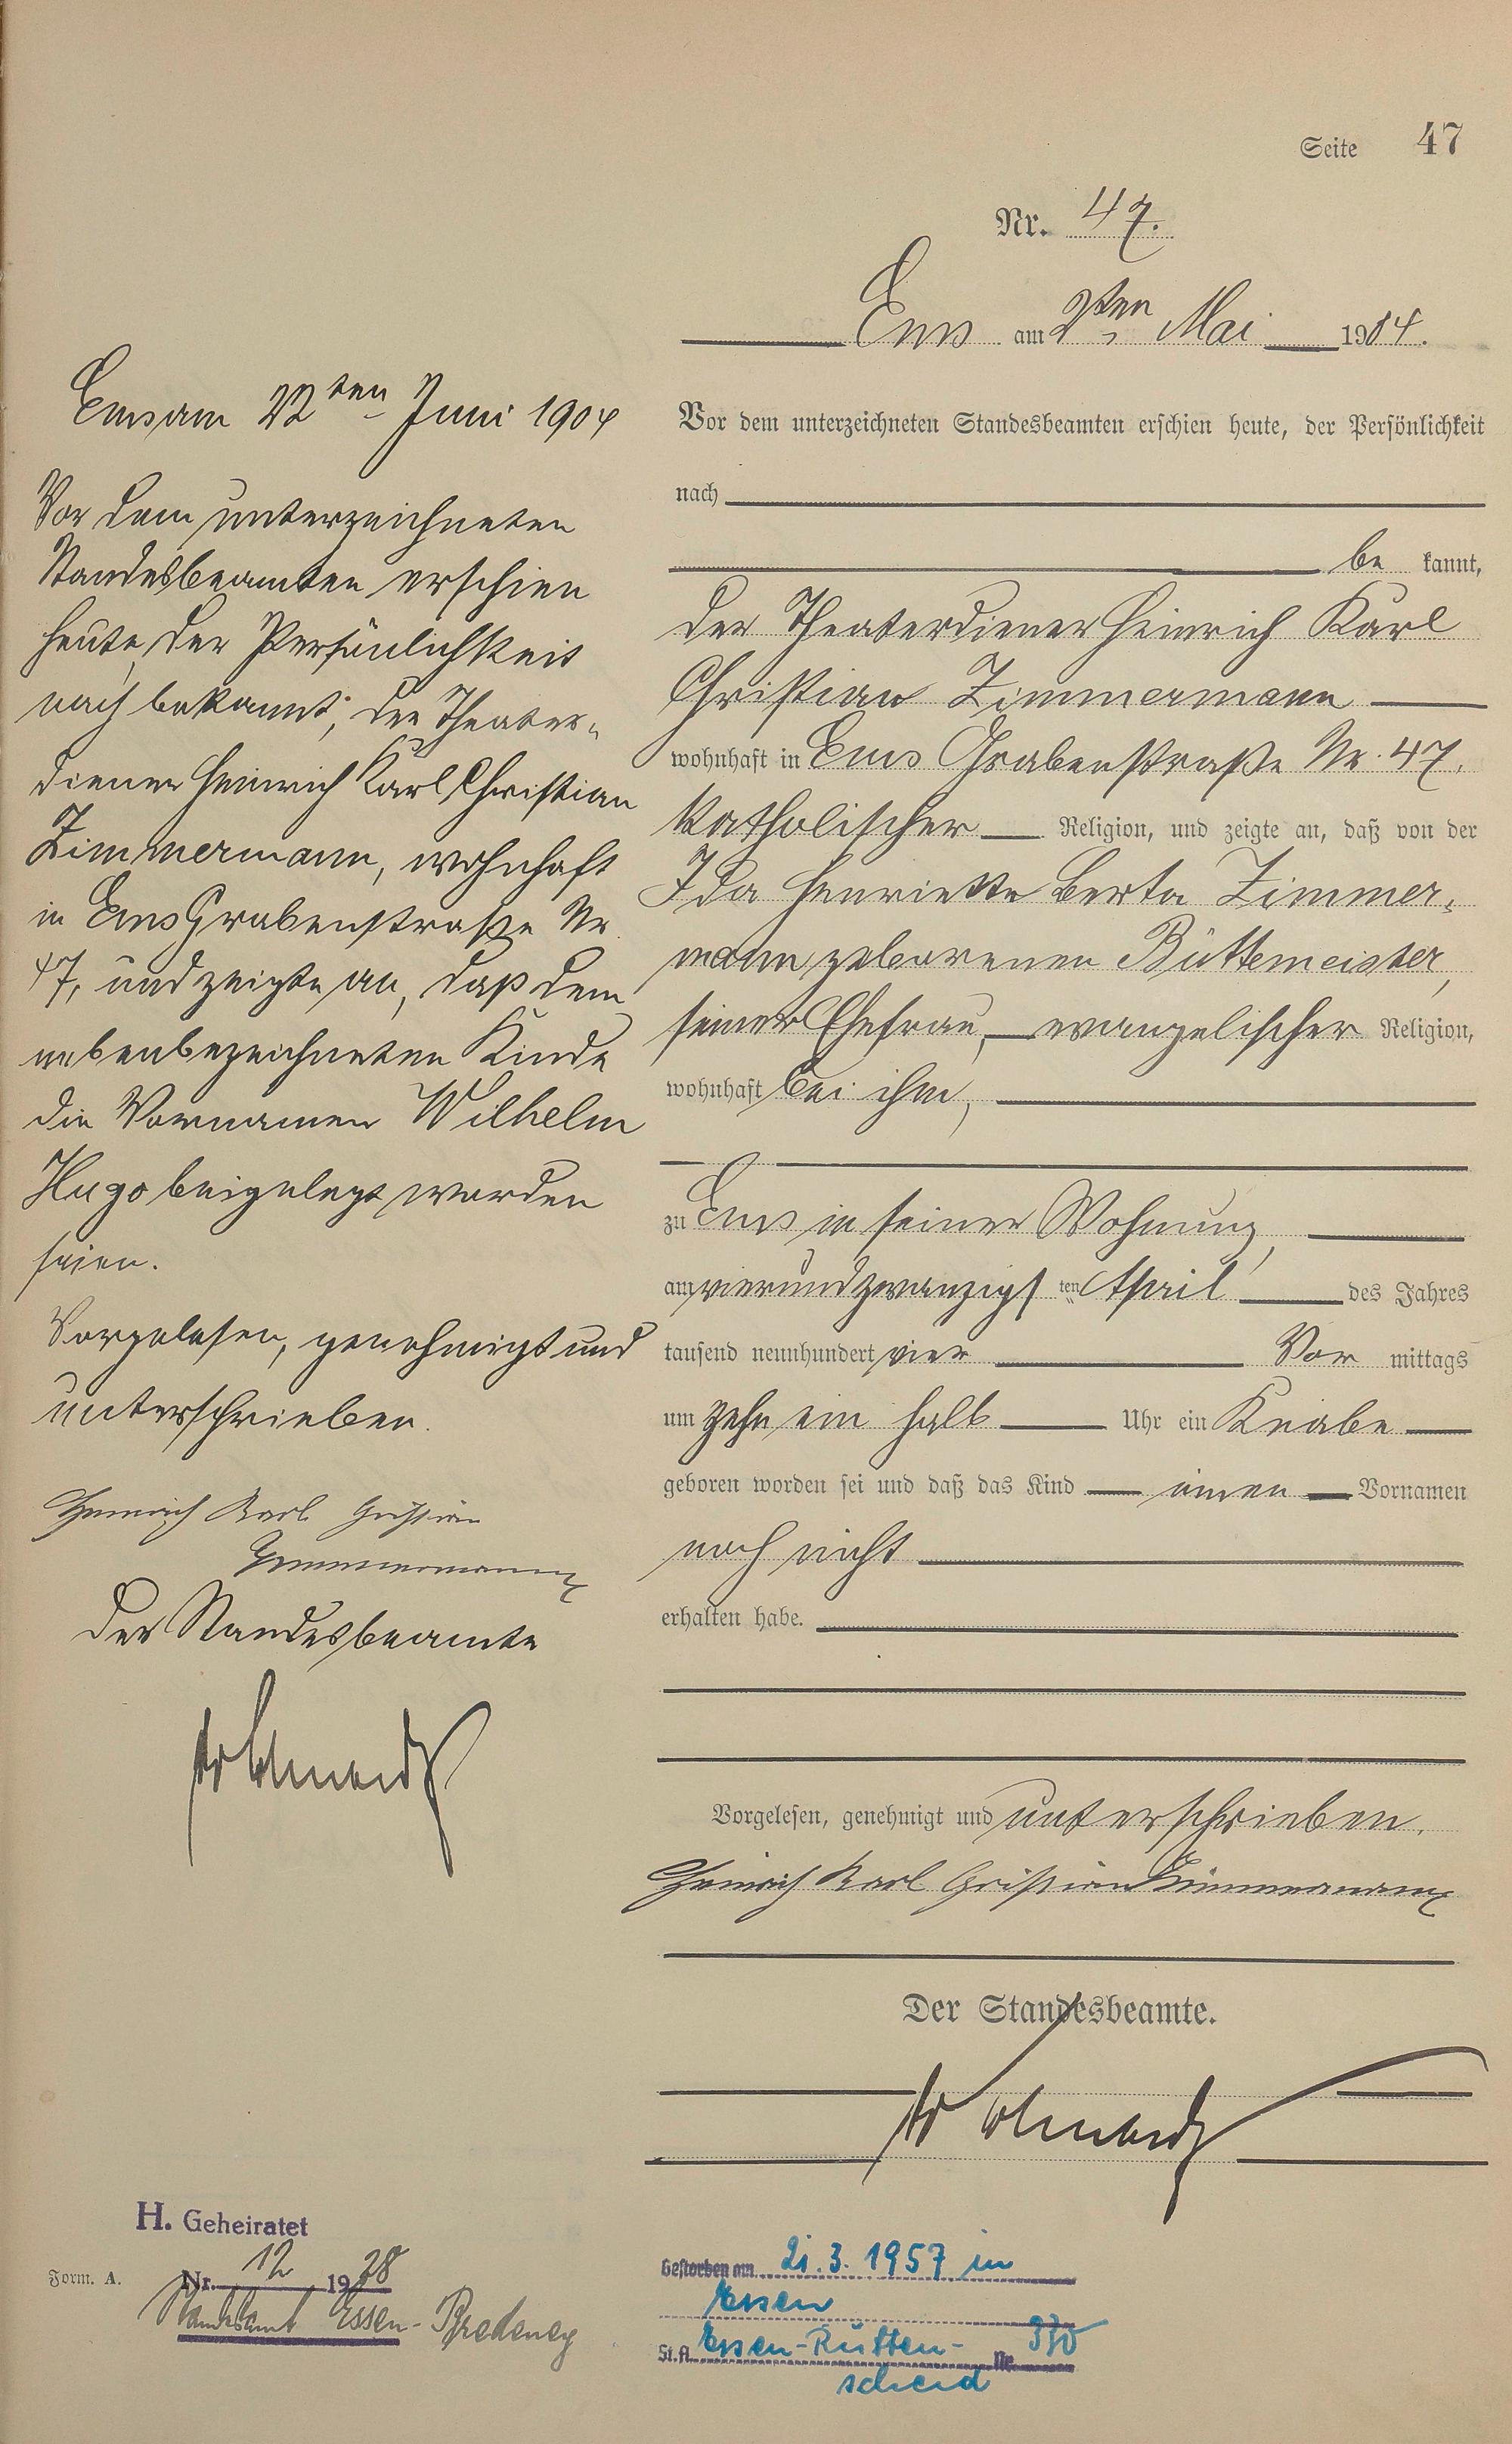 Seite 47
Nr. 47.
Ems am 2ten Mai 1904.
Vor dem unterzeichneten Standesbeamten erschien heute, der Persönlichkeit
nach
be kannt,
der Theaterdiener Heinrich Karl
Christian Zimmermann
wohnhaft in Ems Grabenstraße Nr. 47,
katholischer Religion, und zeigte an, daß von der
Ida Henriette Berta Zimmer-
mann geborenen Büttemeister,
seiner Ehefrau, evangelischer Religion,
wohnhaft bei ihm,
zu Ems in seiner Wohnung,
am vierundzwanzigsten April des Jahres
tausend neunhundert vier Vor mittags
um zehn ein halb Uhr ein Knabe
geboren worden sei und daß das Kind einen Vornamen
noch nicht
erhalten habe.
Vorgelesen, genehmigt und unterschrieben.
Heinrich Karl Christian Zimmermann
Der Standesbeamte.
Ems am 22ten Juni 1904
Vor dem unterzeichneten
Standesbeamten erschien
heute, der Persönlichkeit
nach bekannt, der Theater-
diener Heinrich Karl Christian
Zimmermann, wohnhaft
in Ems Grabenstraße Nr.
47, und zeigte an, daß dem
nebenbezeichneten Kinde
die Vornamen Wilhelm
Hugo beigelegt worden
seien.
Vorgelesen, genehmigt und
unterschrieben.
Heinrich Karl Christian
Zimmermann
Der Standesbeamte
H. Geheiratet
Nr. 12 1928
Standesamt Essen-Bredeney
Form. A.
Gestorben am 21.3.1957 in
Essen
St.A. Essen-Rütten- Nr. 370
scheid